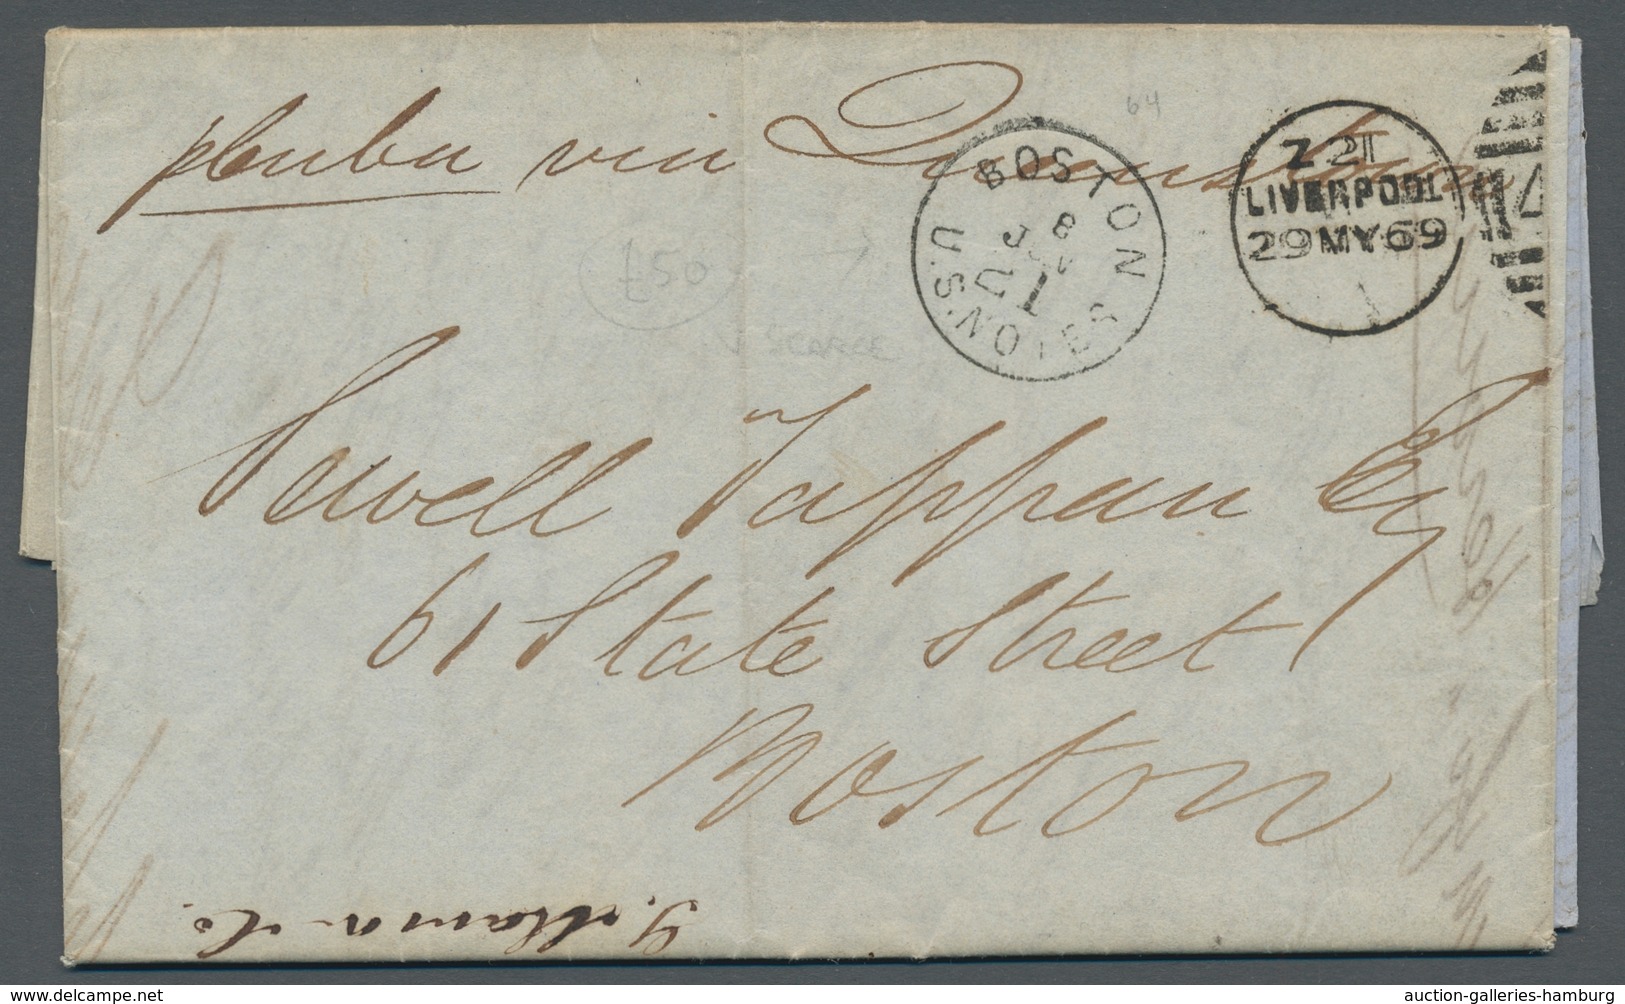 p Cuba via Queenstown
64
BOSTON
JUN
8
U.S. NOTES
Z 2T
LIVERPOOL
29 MY 69
£50
SCARCE
Sewell Tappan Esq
61 State Street
Boston
auction-galleries-hamburg